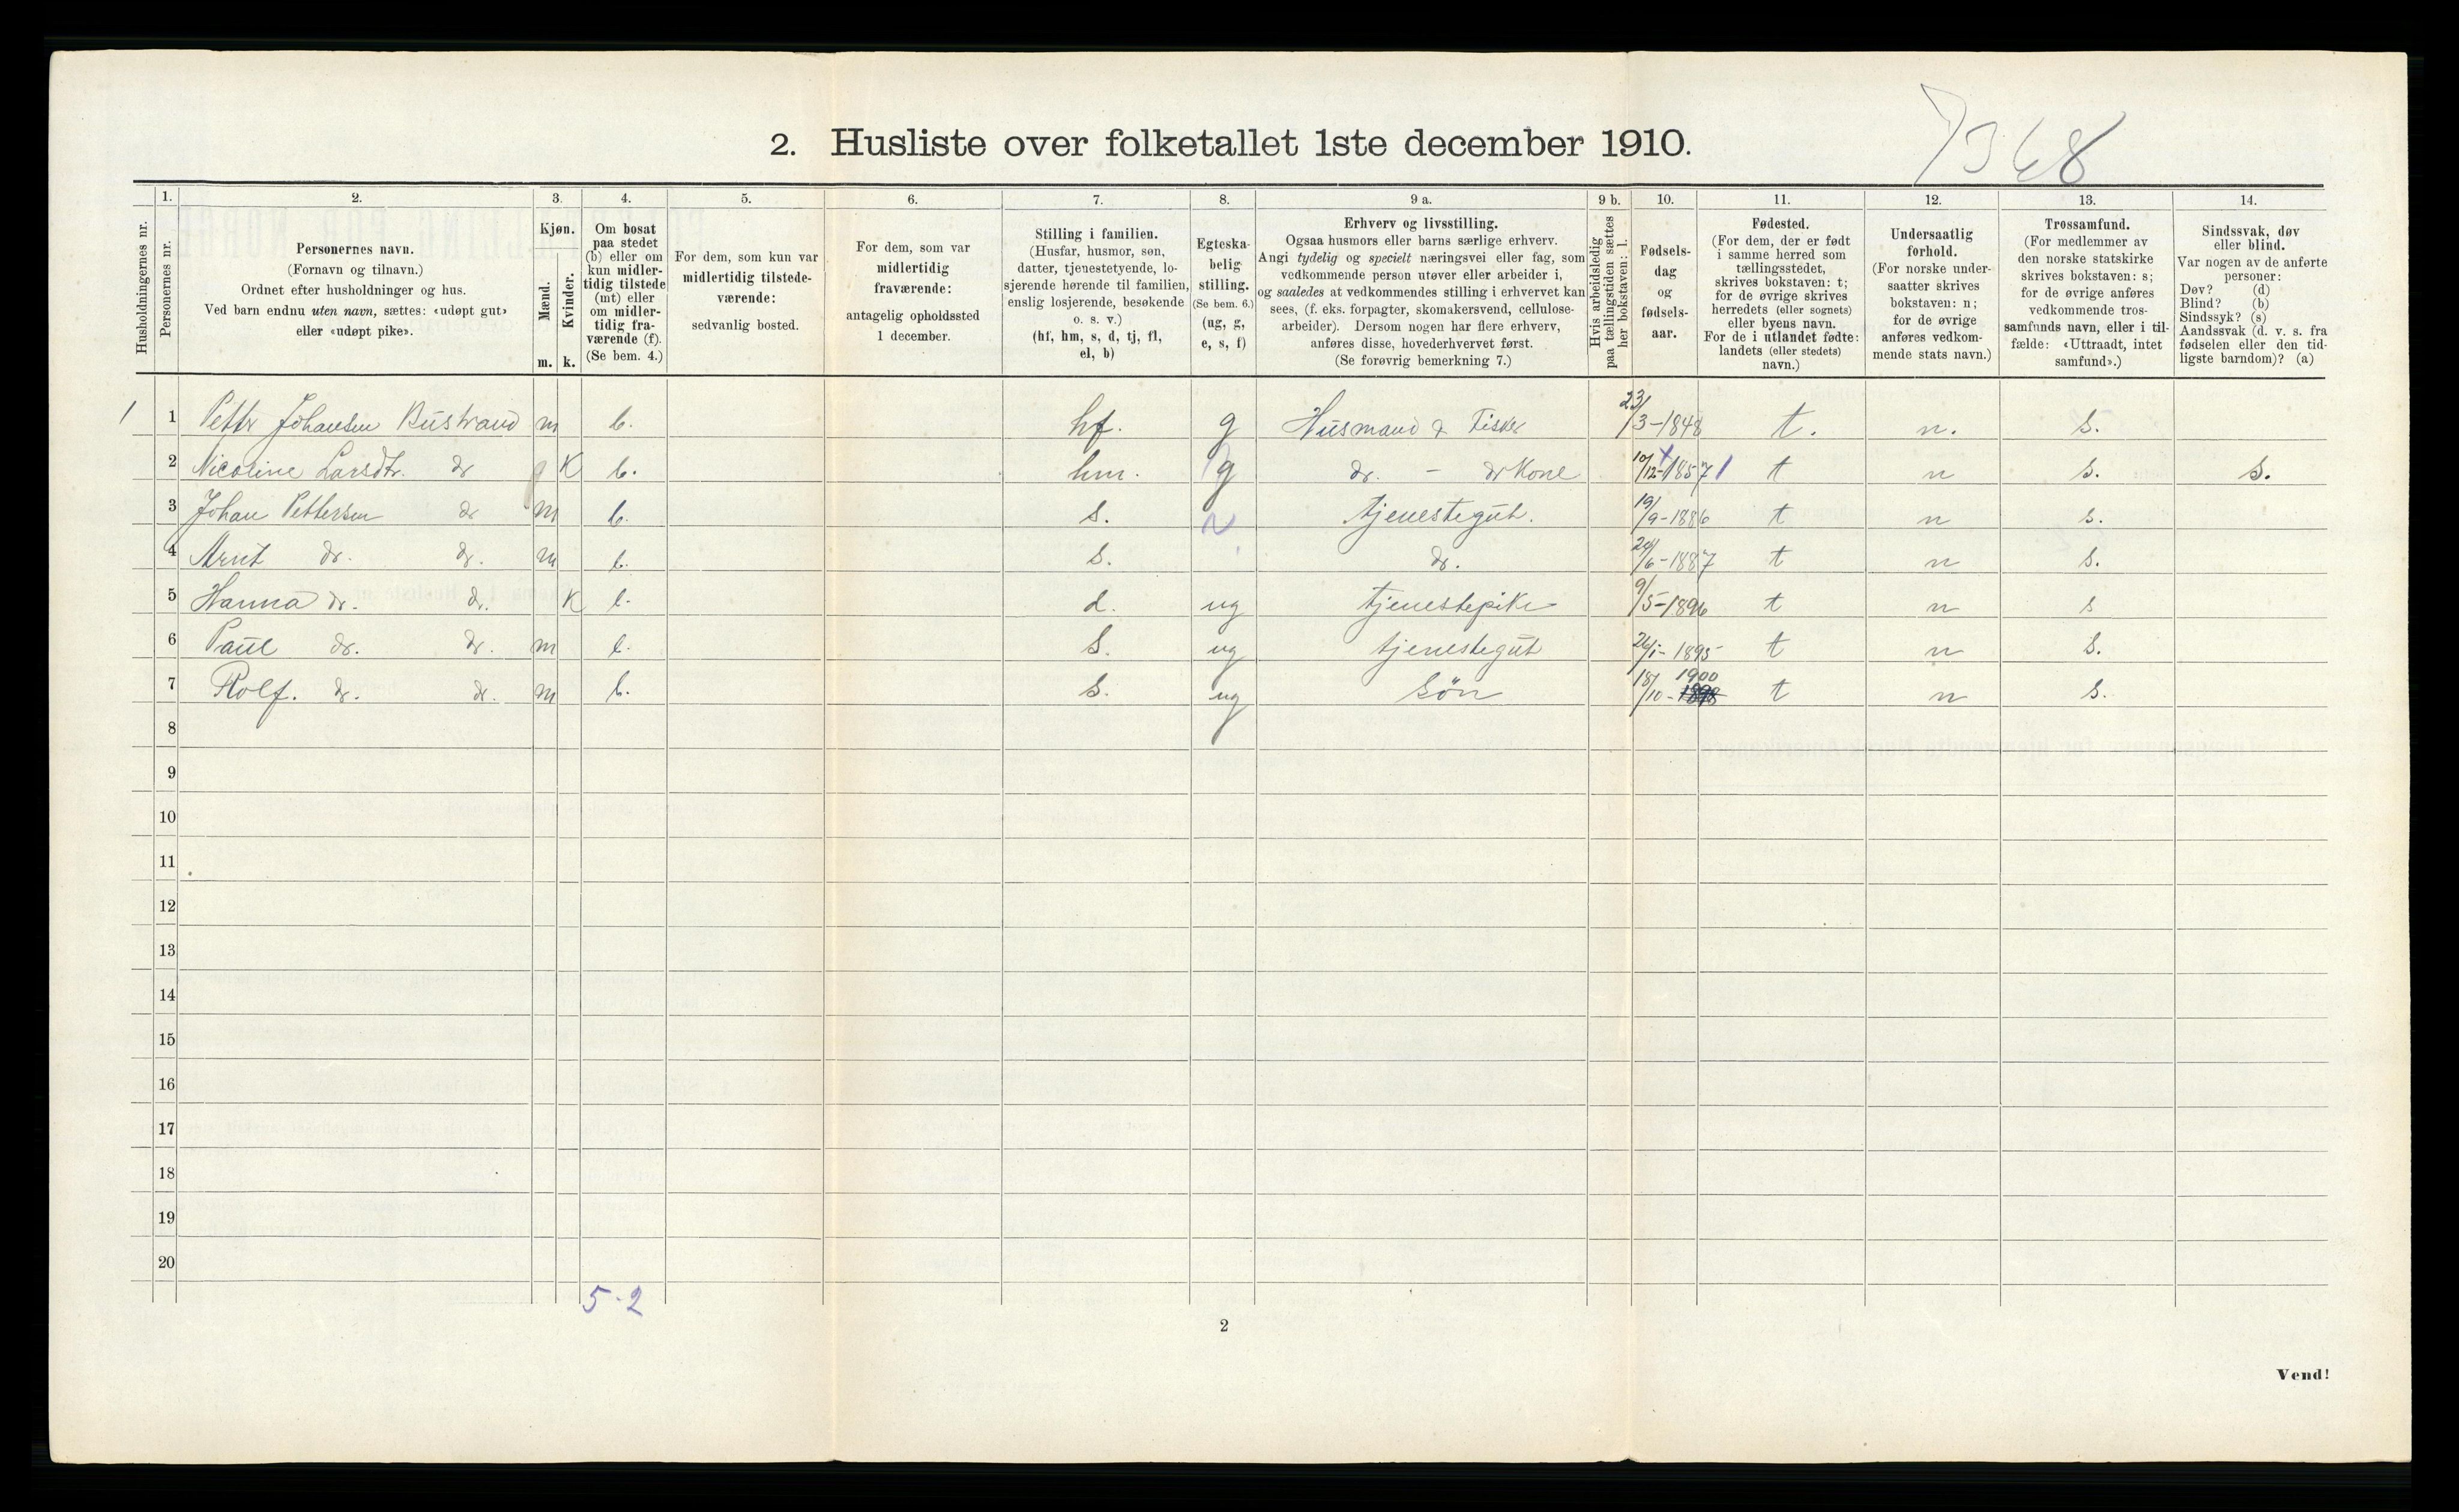 2. Husliste over folketallet 1ste december 1910.
7368
Husholdningernes nr.
1.
Personernes nr.
2.
Personernes navn.
(Fornavn og tilnavn.)
Ordnet efter husholdninger og hus.
Ved barn endnu uten navn, sættes: «udøpt gut»
eller «udøpt pike».
3.
Kjøn.
Mænd.
Kvinder.
m. k.
4.
Om bosat
paa stedet
(b) eller om
kun midler-
tidig tilstede
(mt) eller
om midler-
tidig fra-
værende (f).
(Se bem. 4.)
5.
For dem, som kun var
midlertidig tilstede-
værende:
sedvanlig bosted.
6.
For dem, som var
midlertidig
fraværende:
antagelig opholdssted
1 december.
7.
Stilling i familien.
(Husfar, husmor, søn,
datter, tjenestetyende, lo-
sjerende hørende til familien,
enslig losjerende, besøkende
o. s. v.)
(hf, hm, s, d, tj, fl,
el, b)
8.
Egteska-
belig
stilling.
(Se bem. 6.)
(ug, g,
e, s, f)
9 a.
Erhverv og livsstilling.
Ogsaa husmors eller barns særlige erhverv.
Angi tydelig og specielt næringsvei eller fag, som
vedkommende person utøver eller arbeider i,
og saaledes at vedkommendes stilling i erhvervet kan
sees, (f. eks. forpagter, skomakersvend, cellulose-
arbeider). Dersom nogen har flere erhverv,
anføres disse, hovederhvervet først.
(Se forøvrig bemerkning 7.)
9 b.
Hvis arbeidsledig
paa tællingstiden sættes
her bokstaven: l.
10.
Fødsels-
dag
og
fødsels-
aar.
11.
Fødested.
(For dem, der er født
i samme herred som
tællingsstedet,
skrives bokstaven: t;
for de øvrige skrives
herredets (eller sognets)
eller byens navn.
For de i utlandet fødte:
landets (eller stedets)
navn.)
12.
Undersaatlig
forhold.
(For norske under-
saatter skrives
bokstaven: n;
for de øvrige
anføres vedkom-
mende stats navn.)
13.
Trossamfund.
(For medlemmer av
den norske statskirke
skrives bokstaven: s;
for de øvrige anføres
vedkommende tros-
samfunds navn, eller i til-
fælde: «Uttraadt, intet
samfund».)
14.
Sindssvak, døv
eller blind.
Var nogen av de anførte
personer:
Døv? (d)
Blind? (b)
Sindssyk? (s)
Aandssvak (d. v. s. fra
fødselen eller den tid-
ligste barndom)? (a)
1 1 Petter Johansen Bustrand m b. hf. g Husmand & Fisker 23/3-1848 t. n. s.
2 Nicoline Larsdtr. do K b. hm. g do. - do Kone 10/12-1857 t n s. s.
3 Johan Pettersen do m b. s. tjenestegut. 19/9-1886 t n s.
4 Arnt do. do. m b. s. do. 24/6-1887 t n s.
5 Hanna do. do. K b. d. ug tjenestepike 9/5-1896 t n s
6 Paul do. do. m b. s. ug tjenestegut 26/1-1895 t n s.
7 Rolf. do. do. m b. s. ug søn 18/10-1898 1900 t n s.
8
9
10
11
12
13
14
15
16
17
18
19
20
5-2
2
Vend!